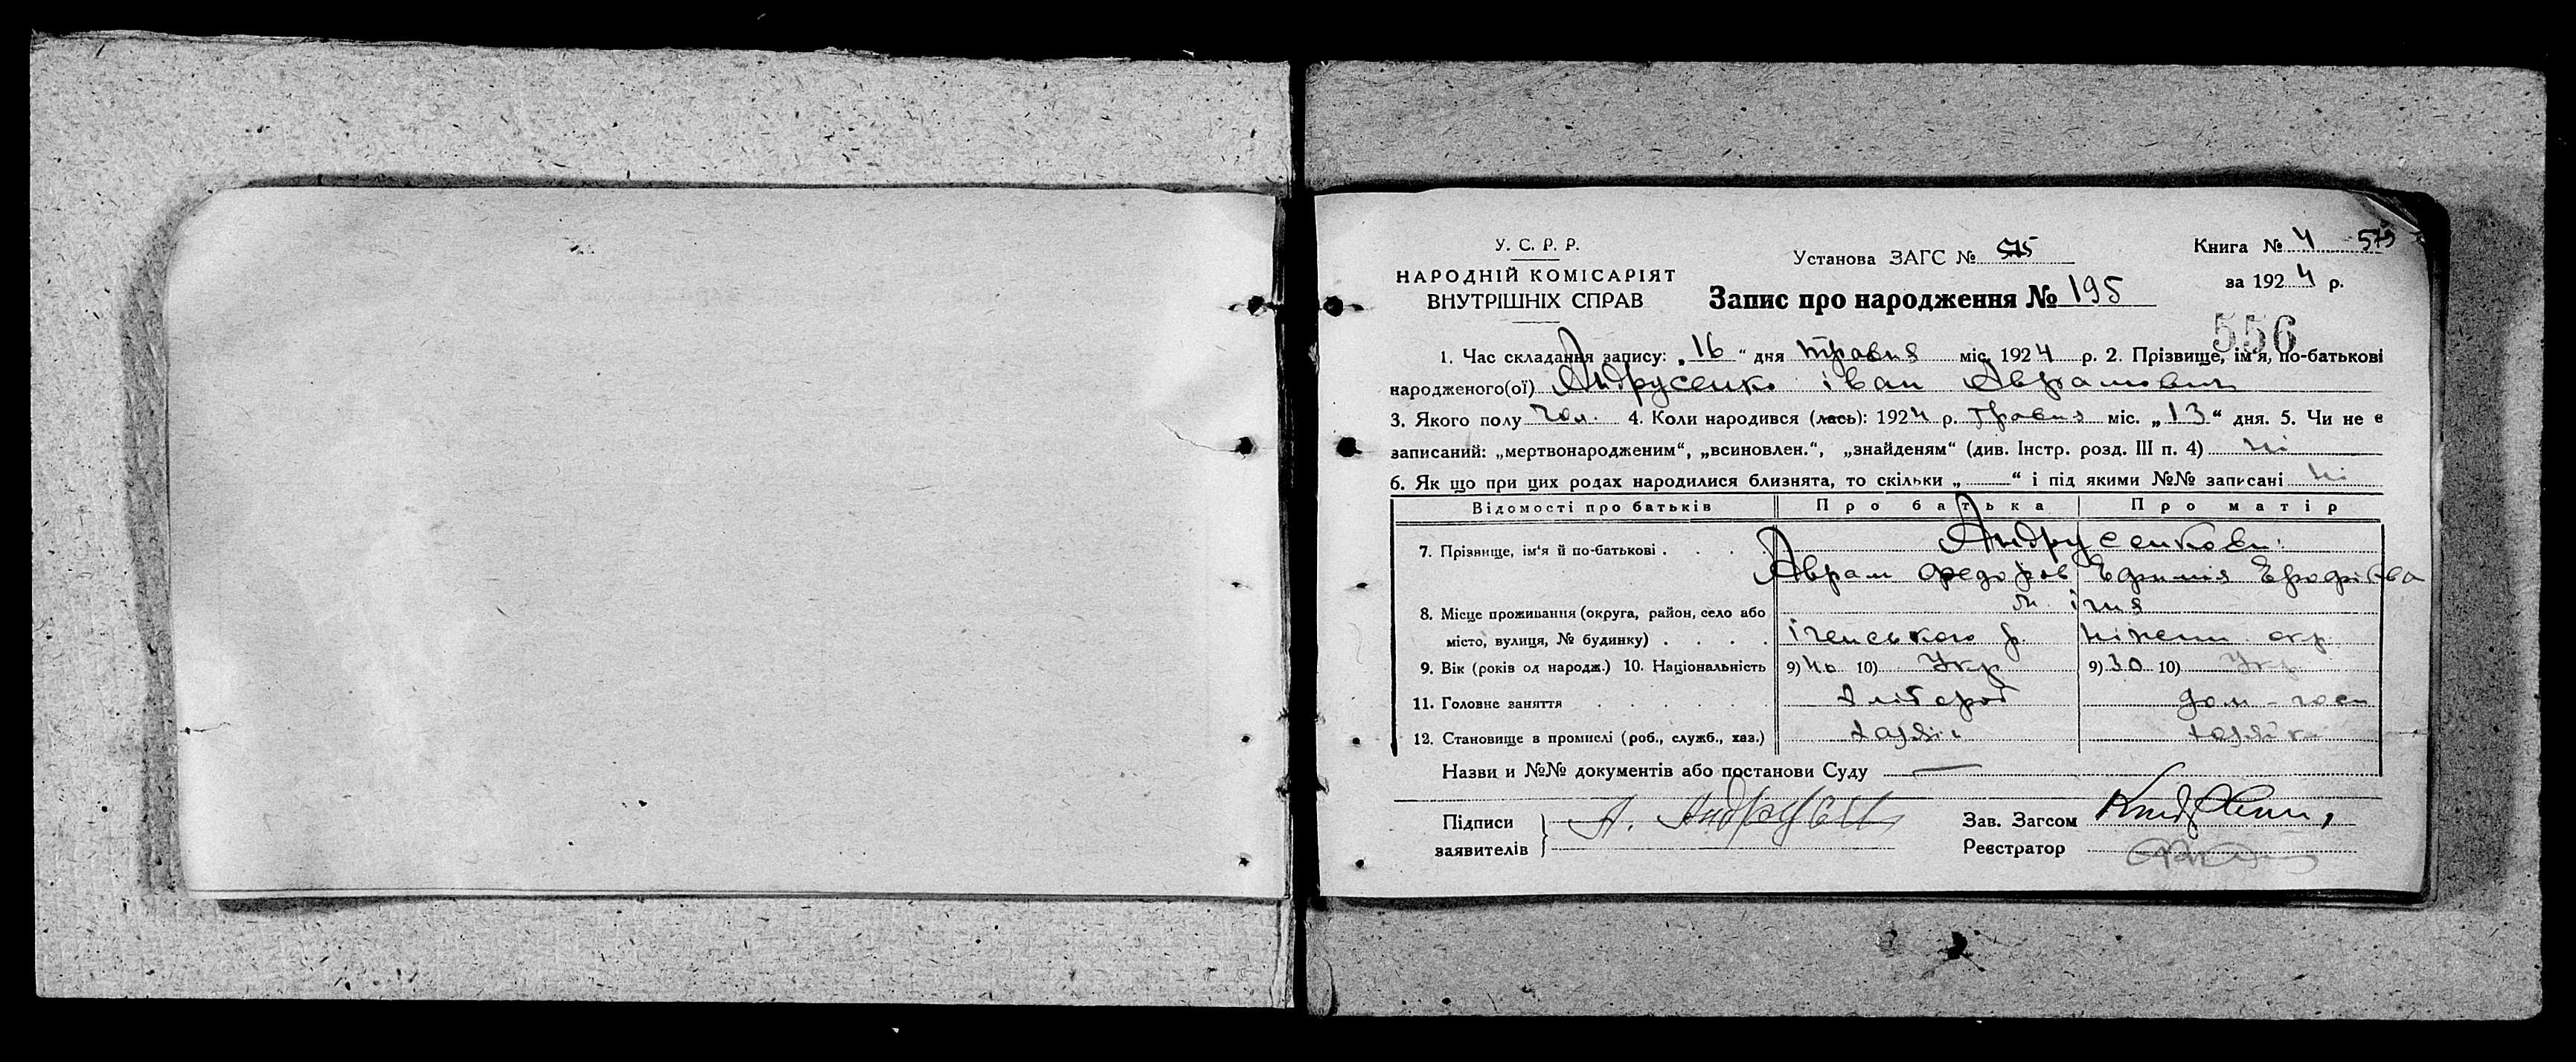 У. С. Р. Р.
НАРОДНІЙ КОМІСАРІЯТ
ВНУТРІШНІХ СПРАВ
Установа ЗАГС №
Книга № 4
за 1924 р.
Запис про народження № 195
556
1. Час складання запису: „16“ дня травня міс. 1924 р. 2. Прізвище, ім'я, по-батькові
народженого(ої) Андрусенко іван Аврамович
3. Якого полу чол. 4. Коли народився (лась): 1924 р. травня міс. „13“ дня. 5. Чи не є
записаний: „мертвонародженим“, „всиновлен.“, „знайденям“ (див. Інстр. розд. III п. 4) ні
6. Як що при цих родах народилися близнята, то скільки „ “ і під якими №№ записані ні
Відомості про батьків Про батька Про матір
7. Прізвище, ім'я й по-батькові . Андрусенкови
Аврам Федоров
8. Місце проживання (округа, район, село або м. ічня
місто, вулиця, № будинку) . . . . іченського р. ніжени окр.
9. Вік (років од народж.) 10. Національність 9) 40 10) Укр 9) 30 10) Укр
11. Головне заняття . . . . . . Хлібороб дом-госп
12. Становище в промислі (роб., служб., хаз.) хазяін хазяйка
Назви и №№ документів або постанови Суду —
Підписи
заявителів
А.
Зав. Загсом
Реєстратор